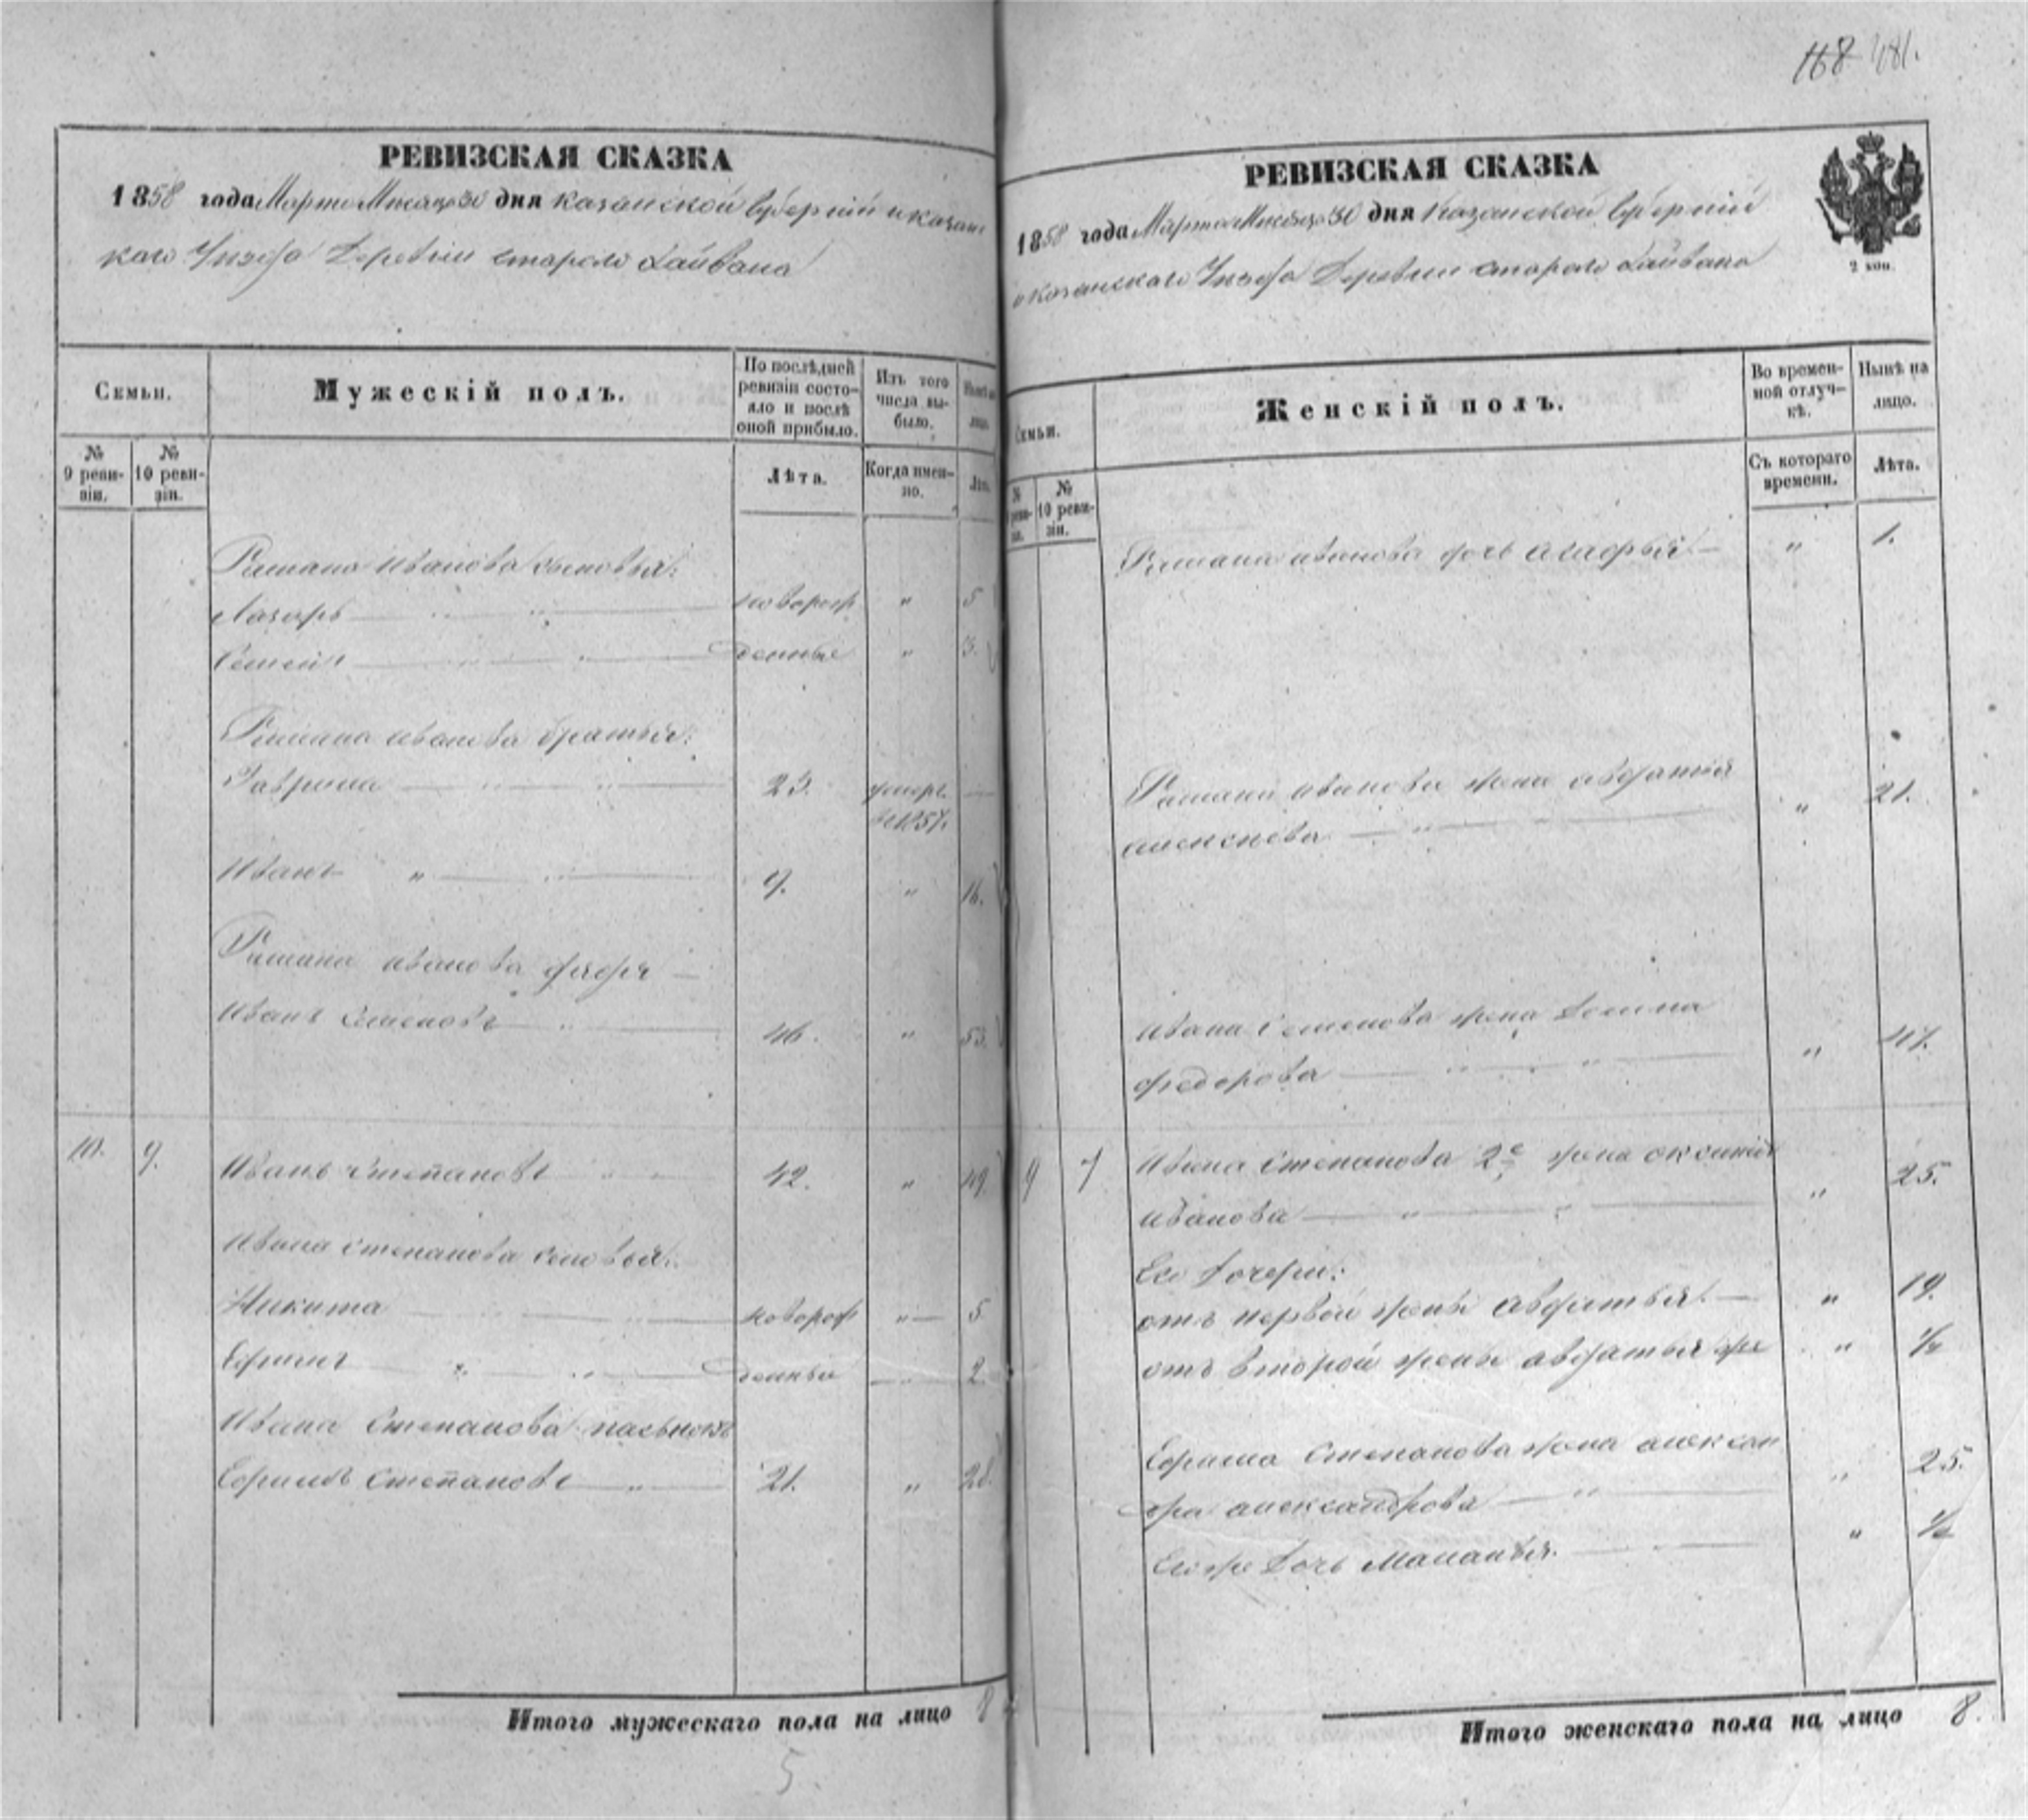 РЕВИЗСКАЯ СКАЗКА
1858 года Марта Месяца 30 дня Казанской Губерніи и казанс
каго Уезда Деревни Старого
Семьи.
Мужескій полъ.
По послѣдней ревизіи состояло и послѣ оной прибыло.
Изъ того числа выбыло.
Нынѣ на лицо.
№ 9 ревизіи.
№ 10 ревизіи.
Лѣта.
Когда именно.
Лѣта.
Романа Иванова сыновья:
Лазарь новорож „ 5
Семенъ денные „ 3.
Романа Иванова братья:
Гаврила 23. умеръ
въ 1857.
Иванъ „ 9. „ 16.
Романа Иванова дядя
Иванъ Семеновъ 46. „ 53.
10. 9. Иванъ Степановъ 42. „ 49.
Ивана Степанова сыновья:
Никита новорож „ 5
Ефимъ денные 2
Ивана Степанова пасынокъ
Ефимъ Степановъ „ 21. „ 28.
Итого мужескаго пола на лицо 8
5.
168 481.
РЕВИЗСКАЯ СКАЗКА
1858 года Марта Месяца 30 дня Казанской Губерніи
и казанскаго Уезда Деревни Старого
2 коп.
Семьи.
Женскій полъ.
Во временной отлучкѣ.
Нынѣ на лицо.
№ 9 ревизіи.
№ 10 ревизіи.
Съ котораго времени.
Лѣта.
Романа Иванова дочь Агафья „ 1.
Романа Иванова жена Авдатья
Алексеева „ 21.
Ивана Семенова жена Домна
Федорова „ 47.
9 9 Ивана Степанова 2е жена Оксинья
Иванова „ 25.
Его Дочери:
отъ первой жены Авдатья „ 19.
отъ второй жены Авдатья же „ ½
Ефима Степанова жена Алексан
дра Александрова „ 25.
Его же Дочь Маланья. „ ½
Итого женскаго пола на лицо 8.